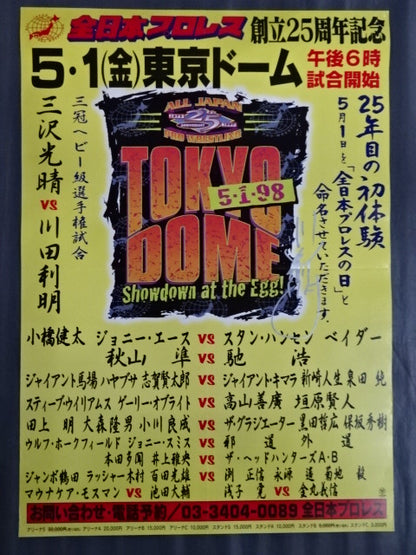 全日本プロレス 創立25周年記念
5・1(金)東京ドーム 午後6時
試合開始
三冠ヘビー級選手権試合
三沢光晴 VS 川田利明
25年目の初体験
5月1日を「全日本プロレスの日」と
命名させていただきます。
ALL JAPAN
25
PRO WRESTLING
TOKYO
5-1-98
DOME
Showdown at the Egg!
小橋健太 ジョニー・エース VS スタン・ハンセン ベイダー
秋山 準 VS 馳 浩
ジャイアント馬場 ハヤブサ 志賀賢太郎 VS ジャイアント・キマラ 新崎人生 泉田 純
スティーブ・ウイリアムス ゲーリー・オブライト VS 高山善廣 垣原賢人
田上 明 大森隆男 小川良成 VS ザ・グラジエーター 黒田哲広 保坂秀樹
ウルフ・ホークフィールド ジョニー・スミス VS 邪道 外道
本田多聞 井上雅央 VS ザ・ヘッドハンターズA・B
ジャンボ鶴田 ラッシャー木村 百田光雄 VS 渕 正信 永源 遥 菊地 毅
マウナケア・モスマン VS 池田大輔 浅子 覚 VS 金丸義信
お問い合わせ・電話予約/03-3404-0089 全日本プロレス